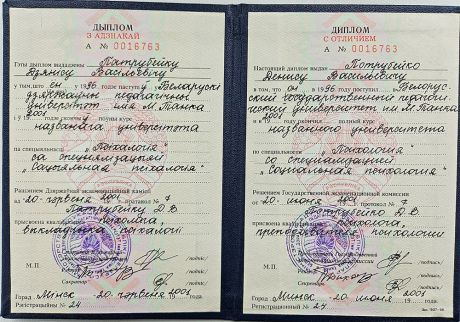 ДЫПЛОМ
З АДЗНАКАЙ
А № 0016763
Гэты дыплом выдадзены Патрубейку
Дзянісу Васільевічу
у тым, што ён у 1996 годзе паступіў у Беларускі
дзяржаўны педагагічны
універсітэт імя М. Танка
і ў 2001 годзе скончыў поўны курс
названага універсітэта
па спецыяльнасці „Псіхалогія"
са спецыялізацыяй
„Сацыяльная псіхалогія"
Рашэннем Дзяржаўнай экзаменацыйнай камісіі
ад 20 чэрвеня 2001 пратакол № 7
Патрубейку Д.В.
прысвоена кваліфікацыя псіхолага,
выкладчыка псіхалогіі
М.П.
Сакратар
/подпіс/
/подпіс/
/подпіс/
Горад Мінск 20 чэрвеня 2001 года
Рэгістрацыйны № 24
ДИПЛОМ
С ОТЛИЧИЕМ
А № 0016763
Настоящий диплом выдан Потрубейко
Денису Васильевичу
в том, что он в 1996 году поступил в Белорус-
ский государственный педагоги-
ческий университет им. М. Танка
и в 2001 году окончил полный курс
названного университета
по специальности „Психология"
со специализацией
„Социальная психология"
Решением Государственной экзаменационной комиссии
от 20 июня 2001 протокол № 7
Потрубейко Д.В.
присвоена квалификация психолога,
преподавателя психологии
М.П.
Секретарь
/подпись/
/подпись/
/подпись/
Город Минск 20 июня 2001 года
Регистрационный № 24